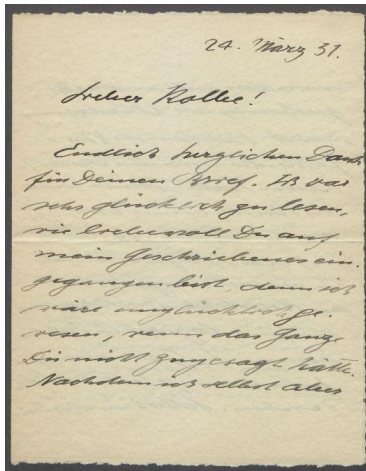 24. März 31.
Lieber Kolbe!
Endlich herzlichen Dank
für Deinen Brief. Ich war
sehr glücklich zu lesen,
wie liebevoll Du auf
mein Geschriebenes ein-
gegangen bist, denn ich
wäre unglücklich ge-
wesen, wenn das Ganze
Dir nicht zugesagt hätte.
Nachdem ich selbst alles